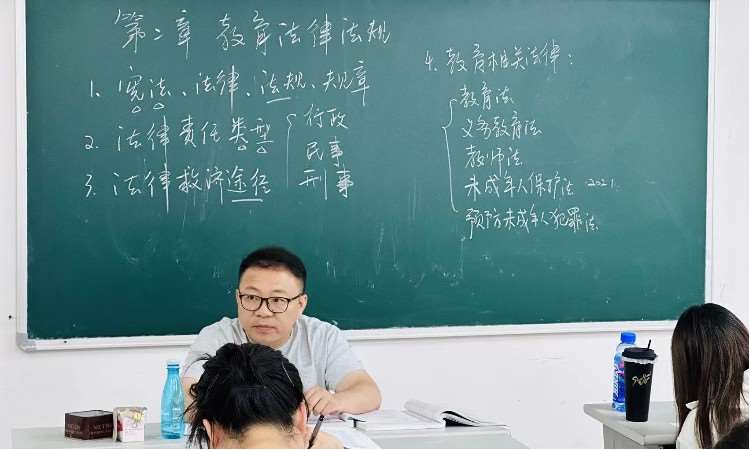 第二章 教育法律法规
1. 宪法、法律、法规、规章
2. 法律责任类型
行政
民事
刑事
3. 法律救济途径
4. 教育相关法律:
教育法
义务教育法
教师法
未成年人保护法 2021.
预防未成年人犯罪法